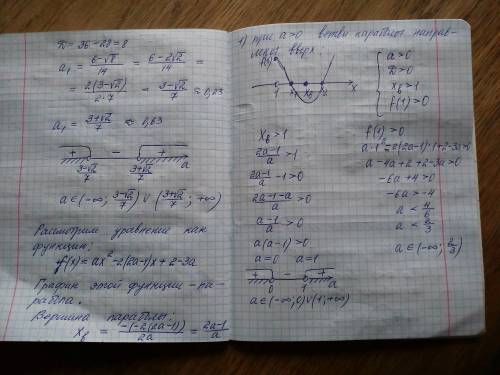 D = 36 - 28 = 8
a₁ = (6-√8)/14 = (6-2√2)/14 =
= 2(3-√2)/(2·7) = (3-√2)/7 ≈ 0,23
a₁ = (3+√2)/7 ≈ 0,63
+ - +
(3-√2)/7 (3+√2)/7 a
a∈(-∞; (3-√2)/7) ∪ ((3+√2)/7; +∞)
Рассмотрим уравнение как
функцию.
f(x)=ax²-2(2a-1)x+2-3a
График этой функции - па-
рабола.
Вершина параболы:
x_в = -(-2(2a-1))/2a = (2a-1)/a
1) при a>0 ветви параболы направ-
лены вверх:
f(1)
1 x₁ x_в x₂ x
a>0
D>0
x_в>1
f(1)>0
x_в>1
(2a-1)/a >1
(2a-1)/a -1>0
(2a-1-a)/a >0
(a-1)/a >0
a(a-1)>0
a=0 a=1
+ - +
0 1 a
a∈(-∞;0)∪(1;+∞)
f(1)>0
a·1²-2(2a-1)·1+2-3a>0
a-4a+2+2-3a>0
-6a+4>0
-6a>-4
a<4/6
a<2/3
a∈(-∞; 2/3)